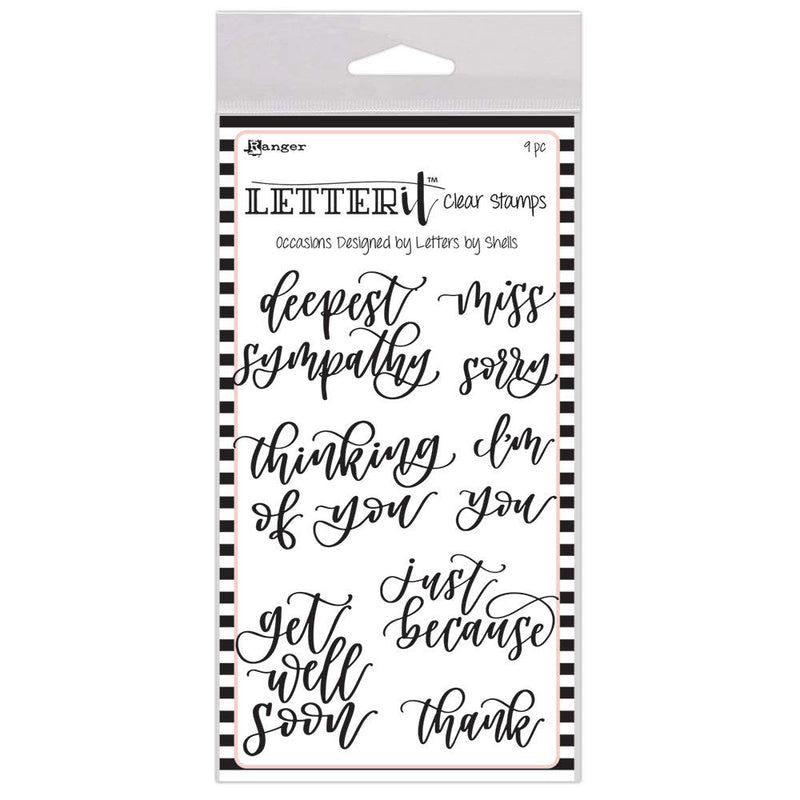 Ranger
9 pc
LETTERit™ Clear Stamps
Occasions Designed by Letters by Shells
deepest
sympathy
miss
sorry
thinking
of you
I'm
you
get
well
soon
just
because
thank